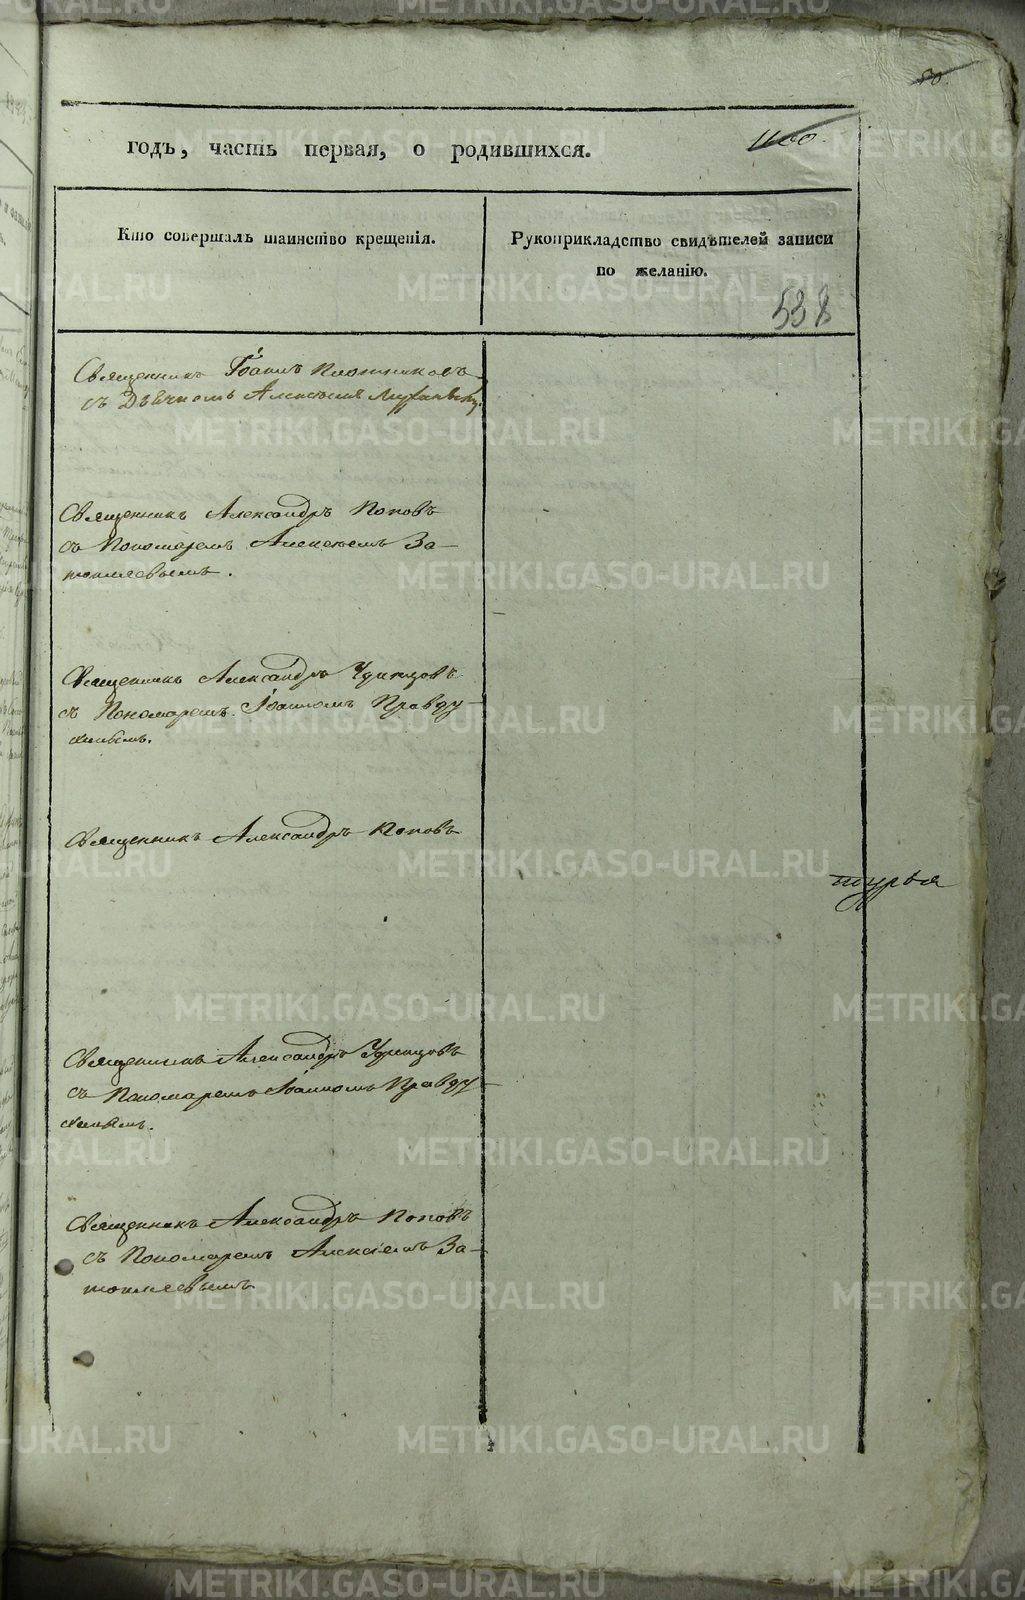 50.
1100.
годъ, часть первая, о родившихся.
Кто совершалъ таинство крещенія.
Рукоприкладство свидѣтелей записи
по желанію.
538
Священникъ Іоаннъ Плотниковъ
съ Дьячкомъ Алексѣемъ
Священникъ Александръ Поповъ
съ Пономаремъ Алексѣемъ За-
топляевымъ.
Священникъ Александръ Удинцовъ
съ Пономаремъ Іоанномъ Правду-
хинымъ.
Священникъ Александръ Поповъ
турья
Священникъ Александръ Удинцовъ
съ Пономаремъ Іоанномъ Правду-
хинымъ.
Священникъ Александръ Поповъ
съ Пономаремъ Алексіемъ За-
топляевымъ
METRIKI.GASO-URAL.RU